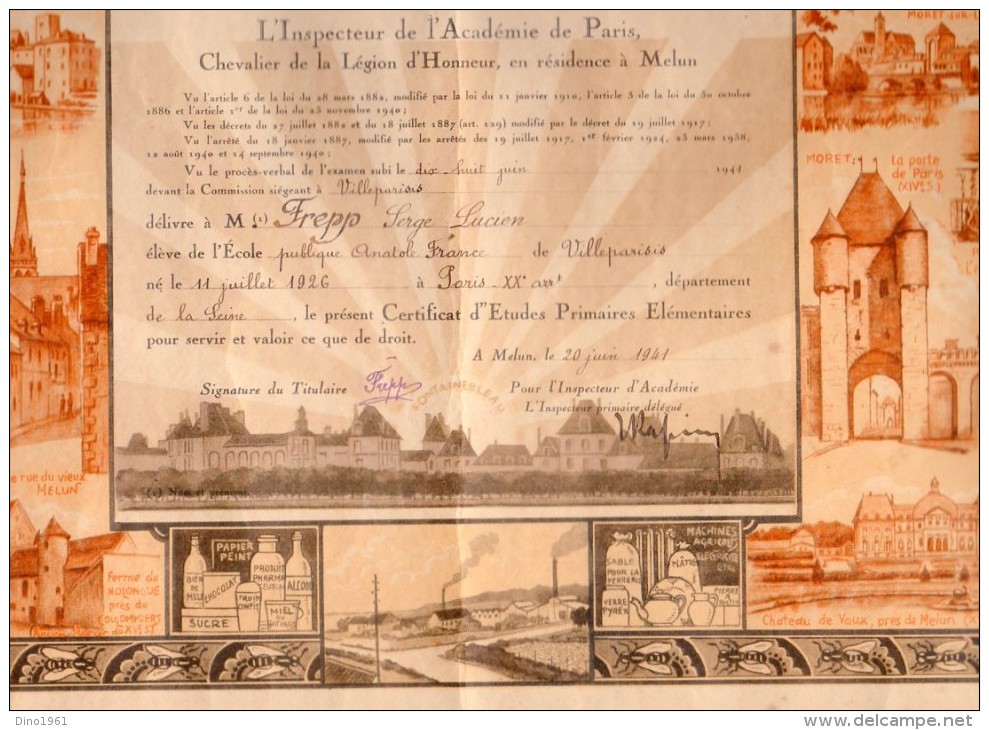 L'Inspecteur de l'Académie de Paris,
Chevalier de la Légion d'Honneur, en résidence à Melun
Vu l'article 6 de la loi du 28 mars 1882, modifié par la loi du 11 janvier 1910, l'article 3 de la loi du 30 octobre
1886 et l'article 1er de la loi du 23 novembre 1940;
Vu les décrets du 27 juillet 1882 et du 18 juillet 1887 (art. 129) modifié par le décret du 19 juillet 1917;
Vu l'arrêté du 18 janvier 1887, modifié par les arrêtés des 19 juillet 1917, 1er février 1924, 23 mars 1938,
12 août 1940 et 14 septembre 1940;
Vu le procès-verbal de l'examen subi le dix-huit juin 1941
devant la Commission siégeant à Villeparisis
délivre à M. (1) Frepp Serge Lucien
élève de l'École publique Anatole France de Villeparisis
né le 11 juillet 1926 à Paris-XXe arrt, département
de la Seine, le présent Certificat d'Etudes Primaires Elémentaires
pour servir et valoir ce que de droit.
A Melun, le 20 juin 1941
Signature du Titulaire Frepp
Pour l'Inspecteur d'Académie
L'Inspecteur primaire délégué
FONTAINEBLEAU
(1) Nom et prénoms.
MORET
la porte
de Paris
(XIVe S.)
rue du vieux
MELUN
Ferme de
près de
COULOMMIERS
Château de Vaux, près de Melun
PAPIER
PEINT
BIÈRE
DE
CHOCOLAT
PRODUIT
PHARMA
ALCOOL
FRUITS
CONFITS
MIEL
DU
GATINAIS
SUCRE
MACHINES
AGRICOLES
ELECTRICITÉ
ETC.
SABLE
POUR LA
VERRERIE
PLÂTRE
VERRE
PYREX
PIERRE
À
Dino1961
www.delcampe.net